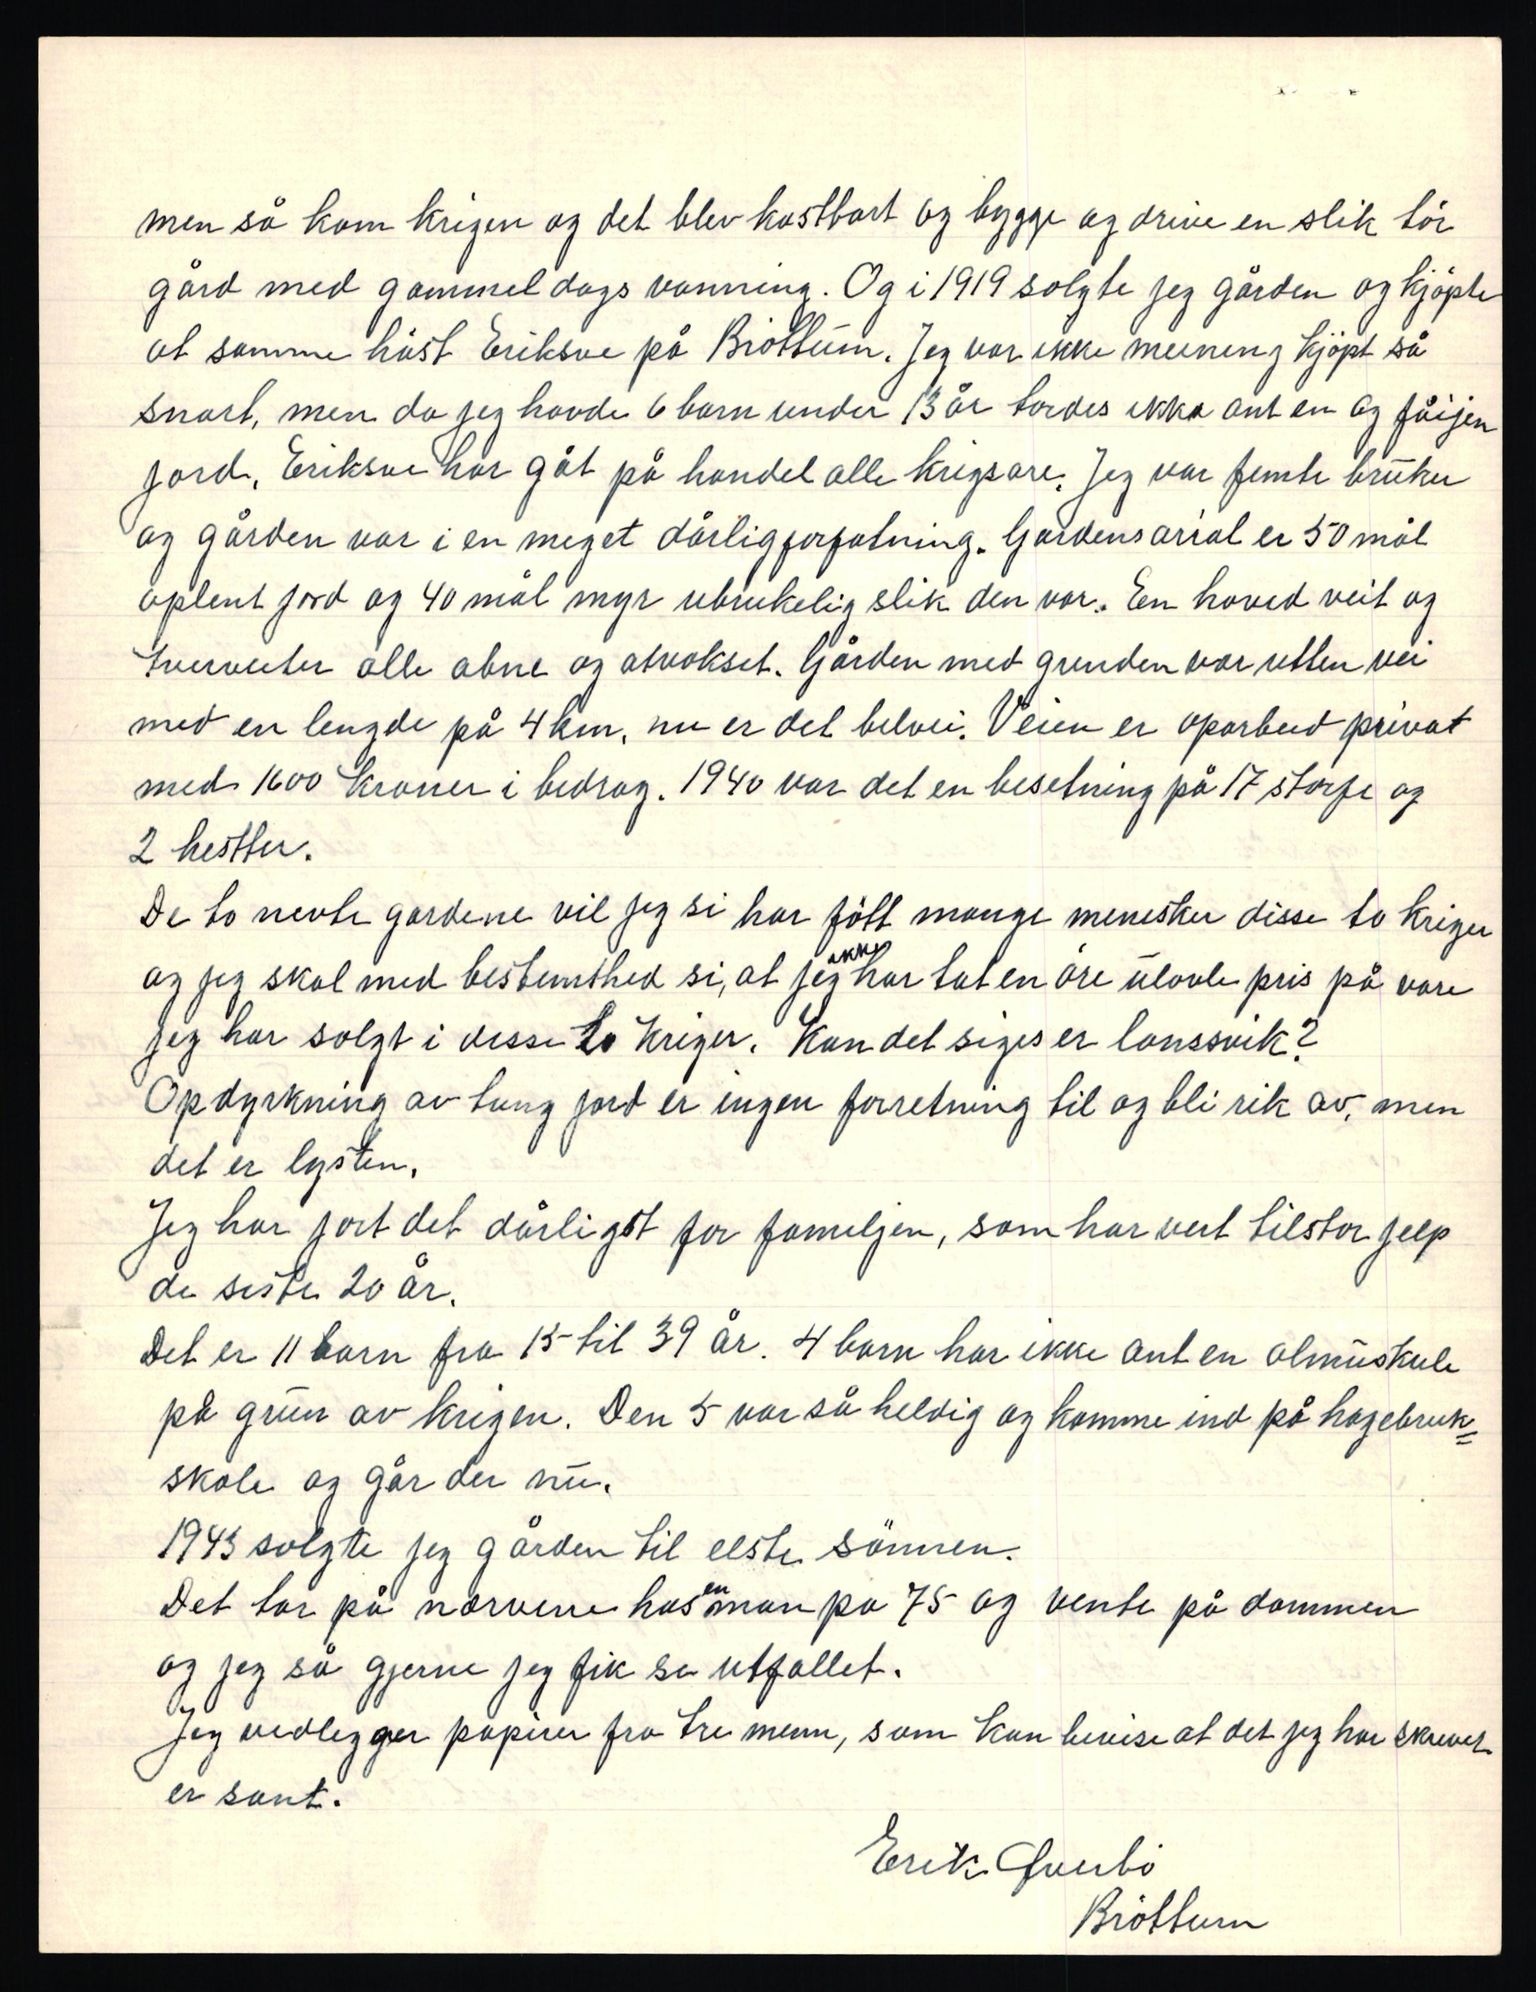 men så kom krigen og det blev kostbart og bygge og drive en slik tör
gård med gammeldags vanning. Og i 1919 solgte jeg gården og kjöpte
at samme höst Eriksve på Bröttum. Jeg var ikke meening kjöpt så
snart, men da jeg havde 6 barn under 13 år tordes ikke ant en og få igjen
jord. Eriksve har gåt på handel alle krigsare. Jeg var femte bruker
og gården var i en meget dårlig forfatning. Gardens arial er 50 mål
oplent jord og 40 mål myr ubrukelig slik den var. En hoved veit og
tverveiter alle abne og atvokset. Gården med grenden var utten vei
med en lengde på 4 km, nu er det bilvei. Veien er oparbeid privat
med 1600 kroner i bedrag. 1940 var det en besetning på 17 storfe og
2 hestter.
De to nevte gardene vil jeg si har födt mange menesker disse to kriger
og jeg skal med bestemthed si, at jeg ikke har tat en öre ulovle pris på vare
jeg har solgt i disse to kriger. Kan det siges er lanssvik?
Opdyrkning av tung jord er ingen forretning til og bli rik av, men
det er lysten.
Jeg har jort det dårligst for fameljen, som har vert til stor jelp
de siste 20 år.
Det er 11 barn fra 15 til 39 år. 4 barn har ikke ant en almuskule
på grun av krigen. Den 5 var så heldig og komme ind på hagebruk=
skole og går der nu.
1943 solgte jeg gården til elste sönnen.
Det tar på nærvene hos en man pa 75 og vente på dommen
og jeg så gjerne jeg fik se utfallet.
Jeg vedlegger papirer fra tre menn, som kan bevise at det jeg har skrevet
er sant.
Erik
Bröttum